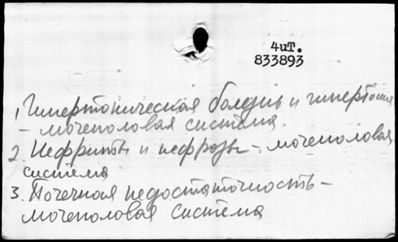 4иТ.
833893
1, Гипертоническая болезнь и гипертония
- мочеполовая система.
2. Нефриты и нефрозы - мочеполовая
система
3. Почечная недостаточность -
мочеполовая система